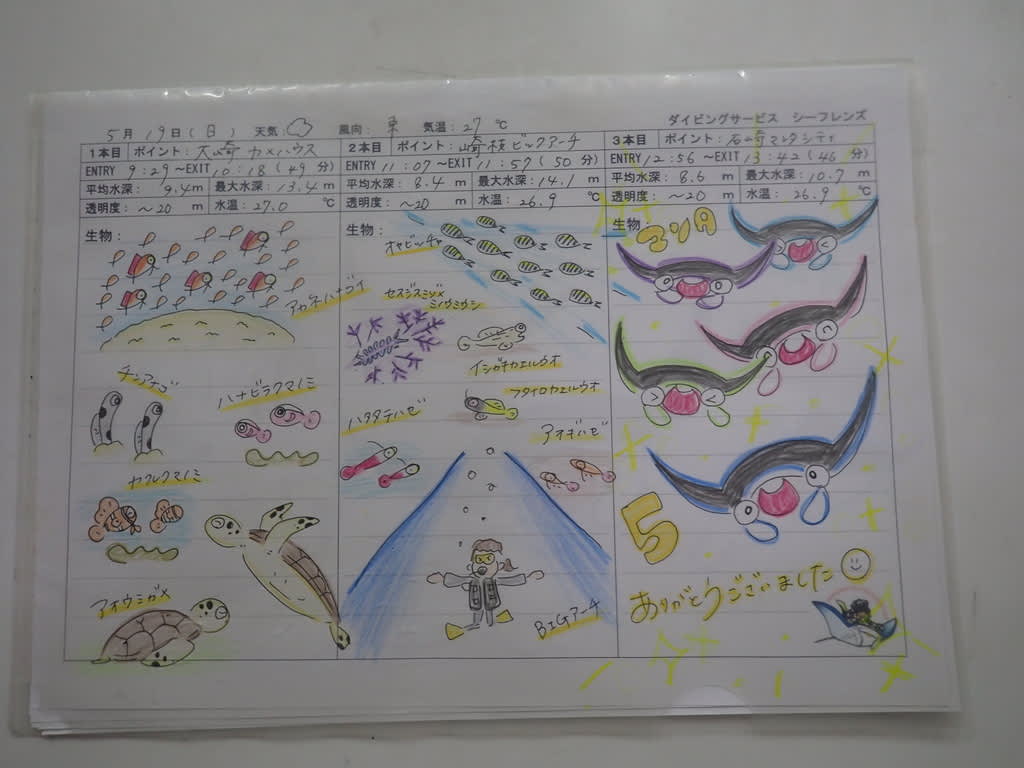 ダイビングサービス シーフレンズ
5月19日(日) 天気: 風向: 東 気温: 27 ℃
1本目 ポイント: 大崎 カメハウス
ENTRY 9:29 ～EXIT 10:18 (49 分)
平均水深: 9.4 m 最大水深: 13.4 m
透明度: ～20 m 水温: 27.0 ℃
生物:
アカネハナゴイ
チンアナゴ
ハナビラクマノミ
カクレクマノミ
アオウミガメ
2本目 ポイント: 崎枝ビックアーチ
ENTRY 11:07 ～EXIT 11:57 (50 分)
平均水深: 8.4 m 最大水深: 14.1 m
透明度: ～20 m 水温: 26.9 ℃
生物:
オヤビッチャ
セスジスミゾメ
ミノウミウシ
イシガキカエルウオ
フタイロカエルウオ
ハタタテハゼ
アオギハゼ
BIGアーチ
3本目 ポイント: 石崎マンタシティ
ENTRY 12:56 ～EXIT 13:42 (46 分)
平均水深: 8.6 m 最大水深: 10.7 m
透明度: ～20 m 水温: 26.9 ℃
生物
マンタ
5
ありがとうございました